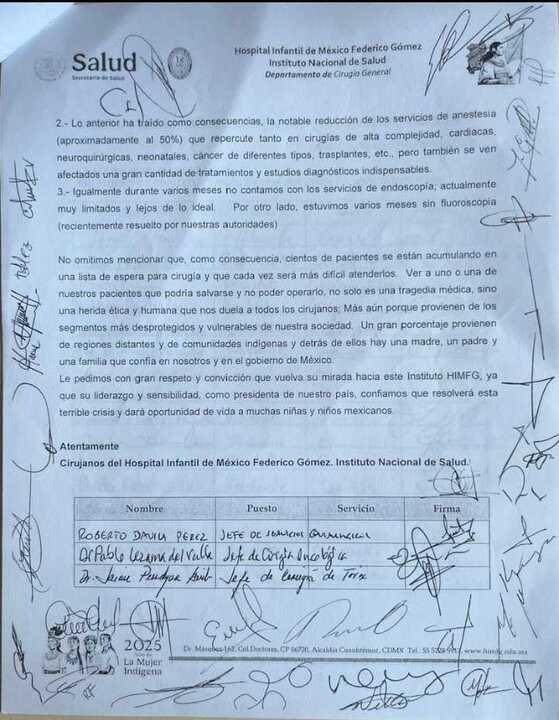 Salud
Secretaría de Salud
Hospital Infantil de México Federico Gómez
Instituto Nacional de Salud
Departamento de Cirugía General
2.- Lo anterior ha traído como consecuencias, la notable reducción de los servicios de anestesia
(aproximadamente al 50%) que repercute tanto en cirugías de alta complejidad, cardiacas,
neuroquirúrgicas, neonatales, cáncer de diferentes tipos, trasplantes, etc., pero también se ven
afectados una gran cantidad de tratamientos y estudios diagnósticos indispensables.
3.- Igualmente durante varios meses no contamos con los servicios de endoscopia; actualmente
muy limitados y lejos de lo ideal. Por otro lado, estuvimos varios meses sin fluoroscopia
(recientemente resuelto por nuestras autoridades)
No omitimos mencionar que, como consecuencia, cientos de pacientes se están acumulando en
una lista de espera para cirugía y que cada vez será más difícil atenderlos. Ver a uno o una de
nuestros pacientes que podría salvarse y no poder operarlo, no solo es una tragedia médica, sino
una herida ética y humana que nos duela a todos los cirujanos; Más aún porque provienen de los
segmentos más desprotegidos y vulnerables de nuestra sociedad. Un gran porcentaje provienen
de regiones distantes y de comunidades indígenas y detrás de ellos hay una madre, un padre y
una familia que confía en nosotros y en el gobierno de México.
Le pedimos con gran respeto y convicción que vuelva su mirada hacia este Instituto HIMFG, ya
que su liderazgo y sensibilidad, como presidenta de nuestro país, confiamos que resolverá esta
terrible crisis y dará oportunidad de vida a muchas niñas y niños mexicanos.
Atentamente
Cirujanos del Hospital Infantil de México Federico Gómez. Instituto Nacional de Salud.
Nombre Puesto Servicio Firma
ROBERTO DAVILA PEREZ JEFE DE SERVICIOS
Dr Pablo Lezama del Valle Jefe de Cirugía Oncológica
Dr. Jaime Jefe de Cirugía de Torax
2025
Año de
La Mujer
Indígena
Dr. Márquez 162, Col. Doctores, CP 06720, Alcaldía Cuauhtémoc, CDMX Tel. 55 5228 9917 www.himfg.edu.mx